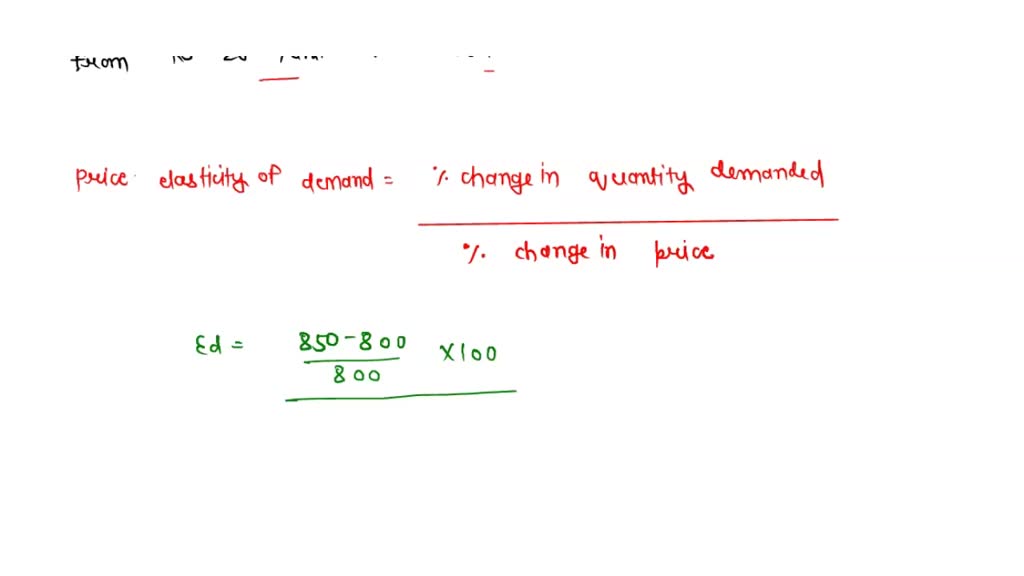 from
price elasticity of demand = % change in quantity demanded
% change in price
Ed = 850-800 x100
800